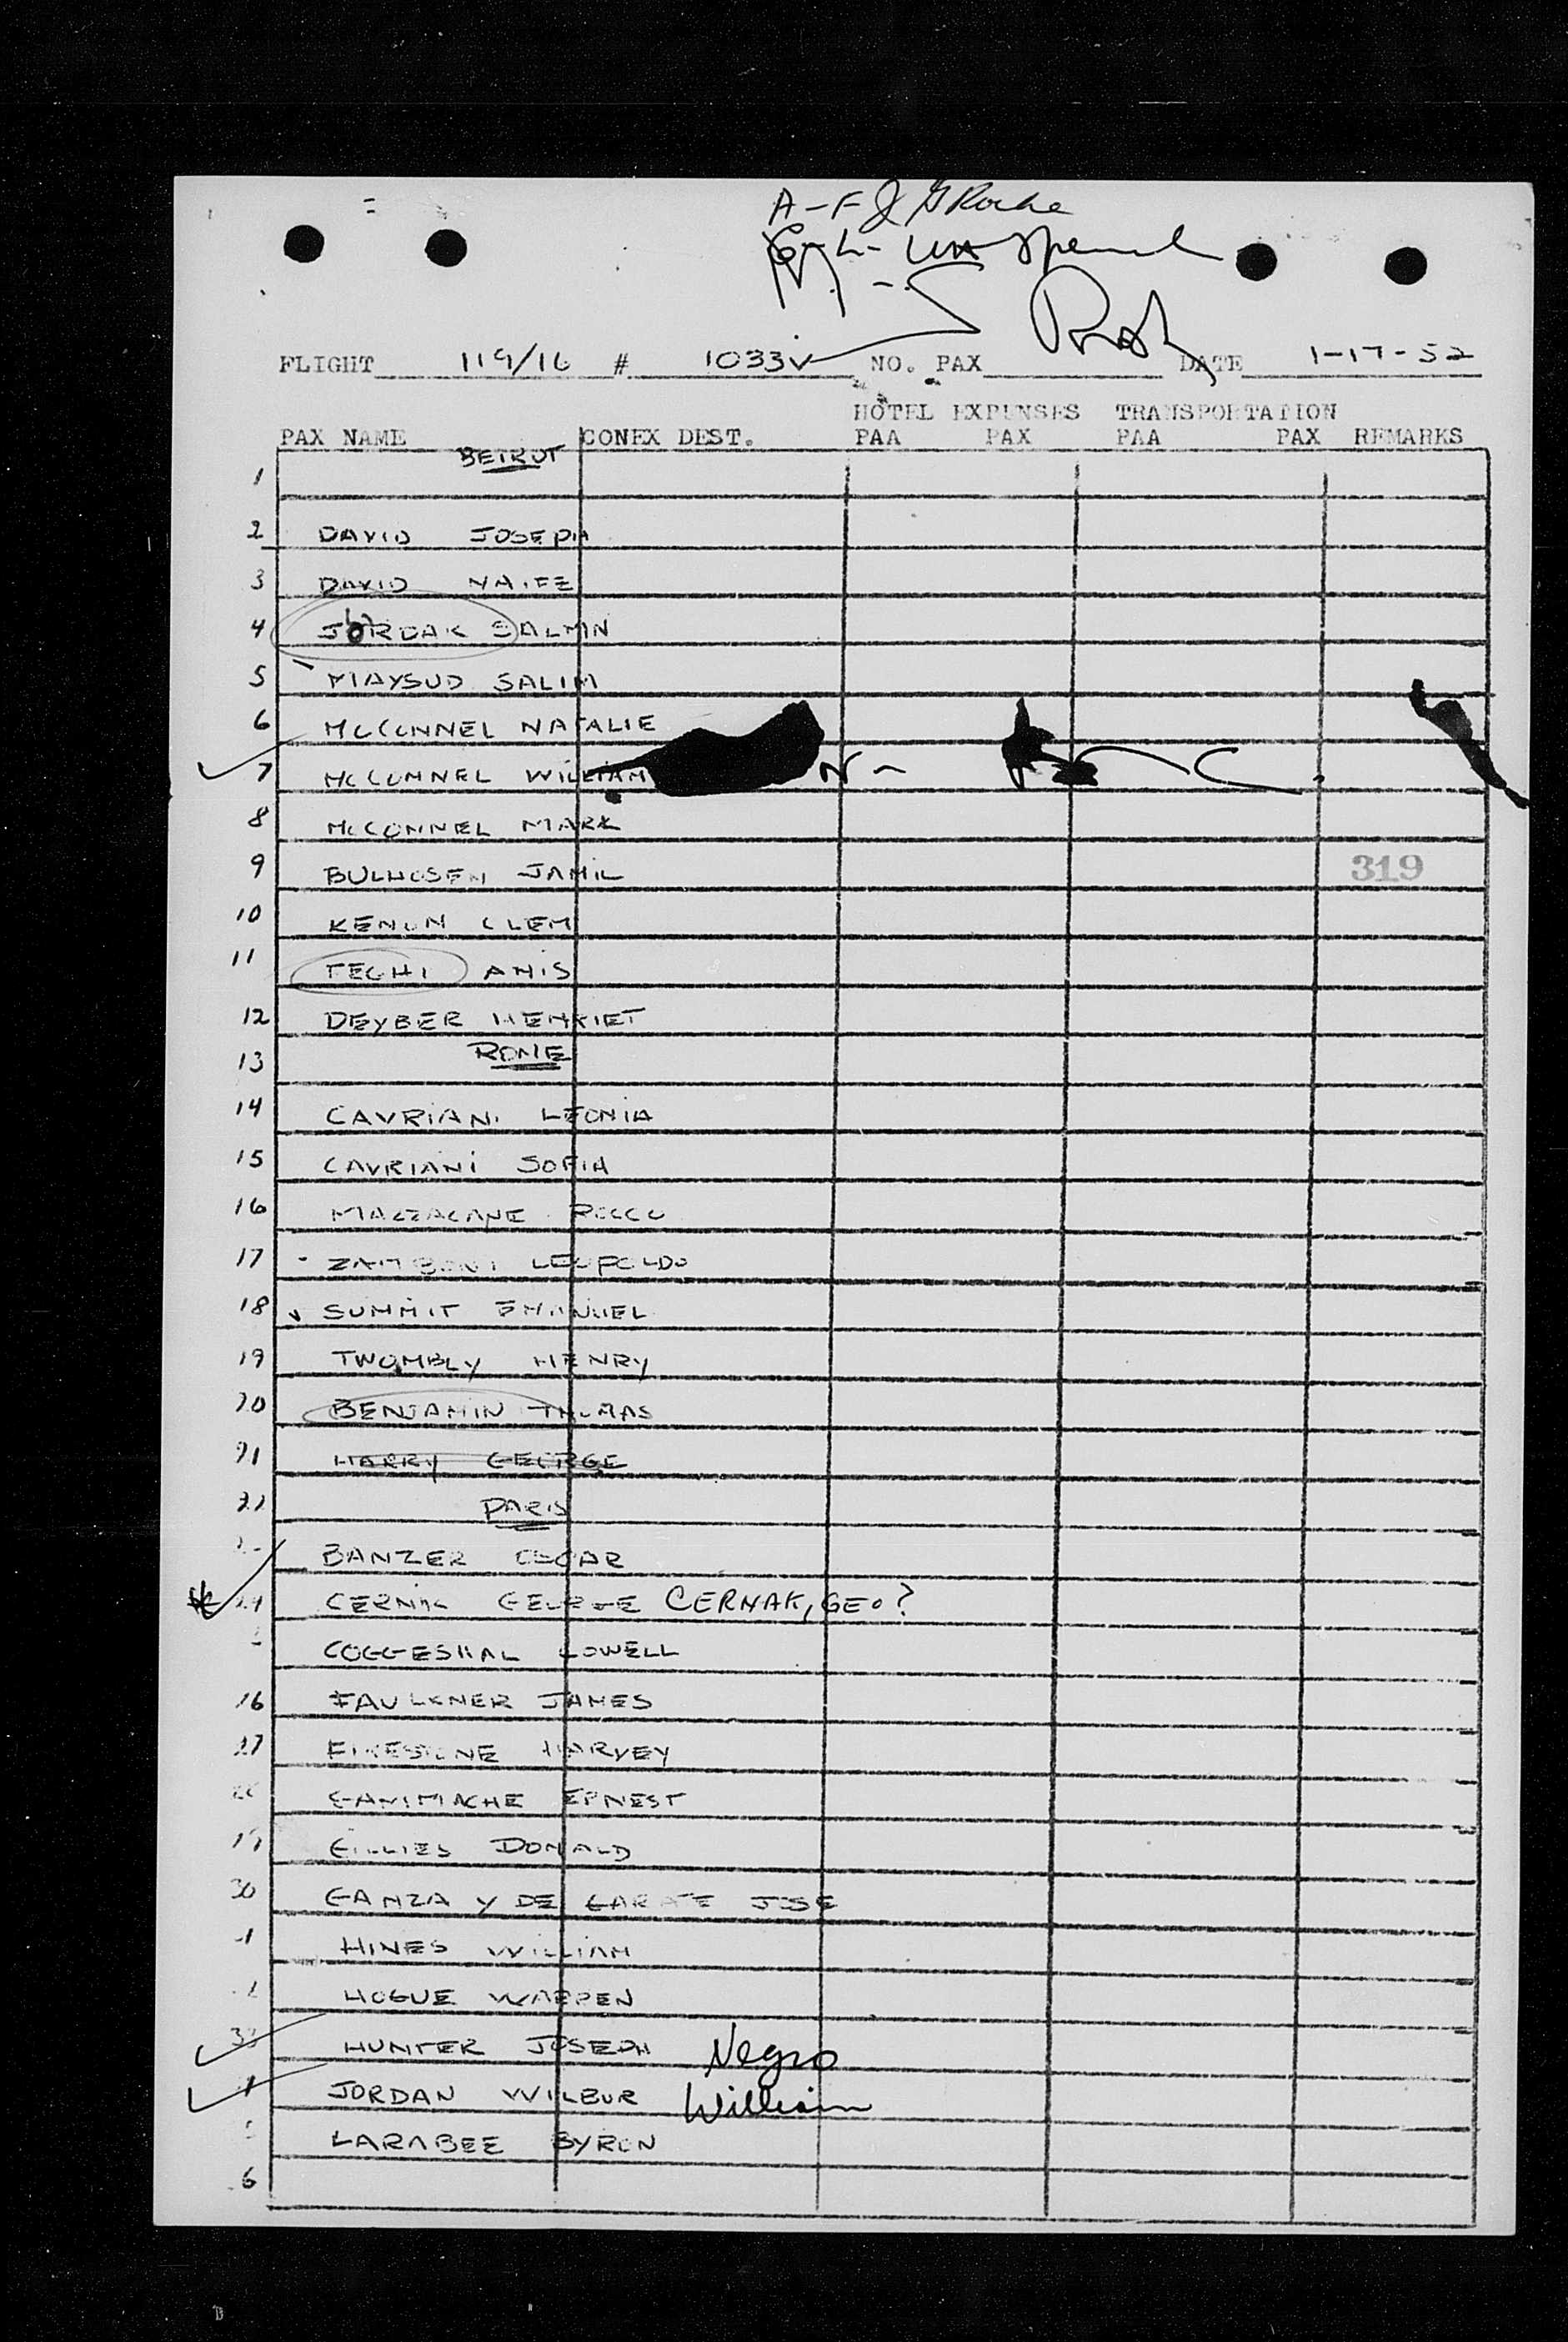 A-F J G Roche
FLIGHT 119/16 # 1033V NO. PAX DATE 1-17-52
HOTEL EXPENSES TRANSPORTATION
PAX NAME CONEX DEST. PAA PAX PAA PAX REMARKS
1 BEIRUT
2 DAVID JOSEPH
3 DAVID NAIFE
4 JORDAK SALMN
5 MAYSUD SALIM
6 MCCONNEL NATALIE
7 MCCONNEL WILLIAM
8 MCCONNEL MARK
9 BULHOSEN JAMIL 319
10 KENON CLEM
11 TEGHI ANIS
12 DEYBER HENRIET
13 ROME
14 CAVRIANI LEONIA
15 CAVRIANI SOFIA
16 MAZZACANE ROCCO
17 ZAMBONI LEOPOLDO
18 SUMMIT EMANUEL
19 TWOMBLY HENRY
20 BENJAMIN THOMAS
21 HARRY GEORGE
22 PARIS
BANZER OSCAR
24 CERNAK GEORGE CERNAK, GEO?
COGGESHAL LOWELL
26 FAULKNER JAMES
27 FIRESTONE HARVEY
GANIMACHE ERNEST
29 GILLIES DONALD
30 GANZA Y DE GARATE JOSE
1 HINES WILLIAM
2 HOGUE WARREN
33 HUNTER JOSEPH Negro
JORDAN WILBUR William
LARABEE BYRON
6